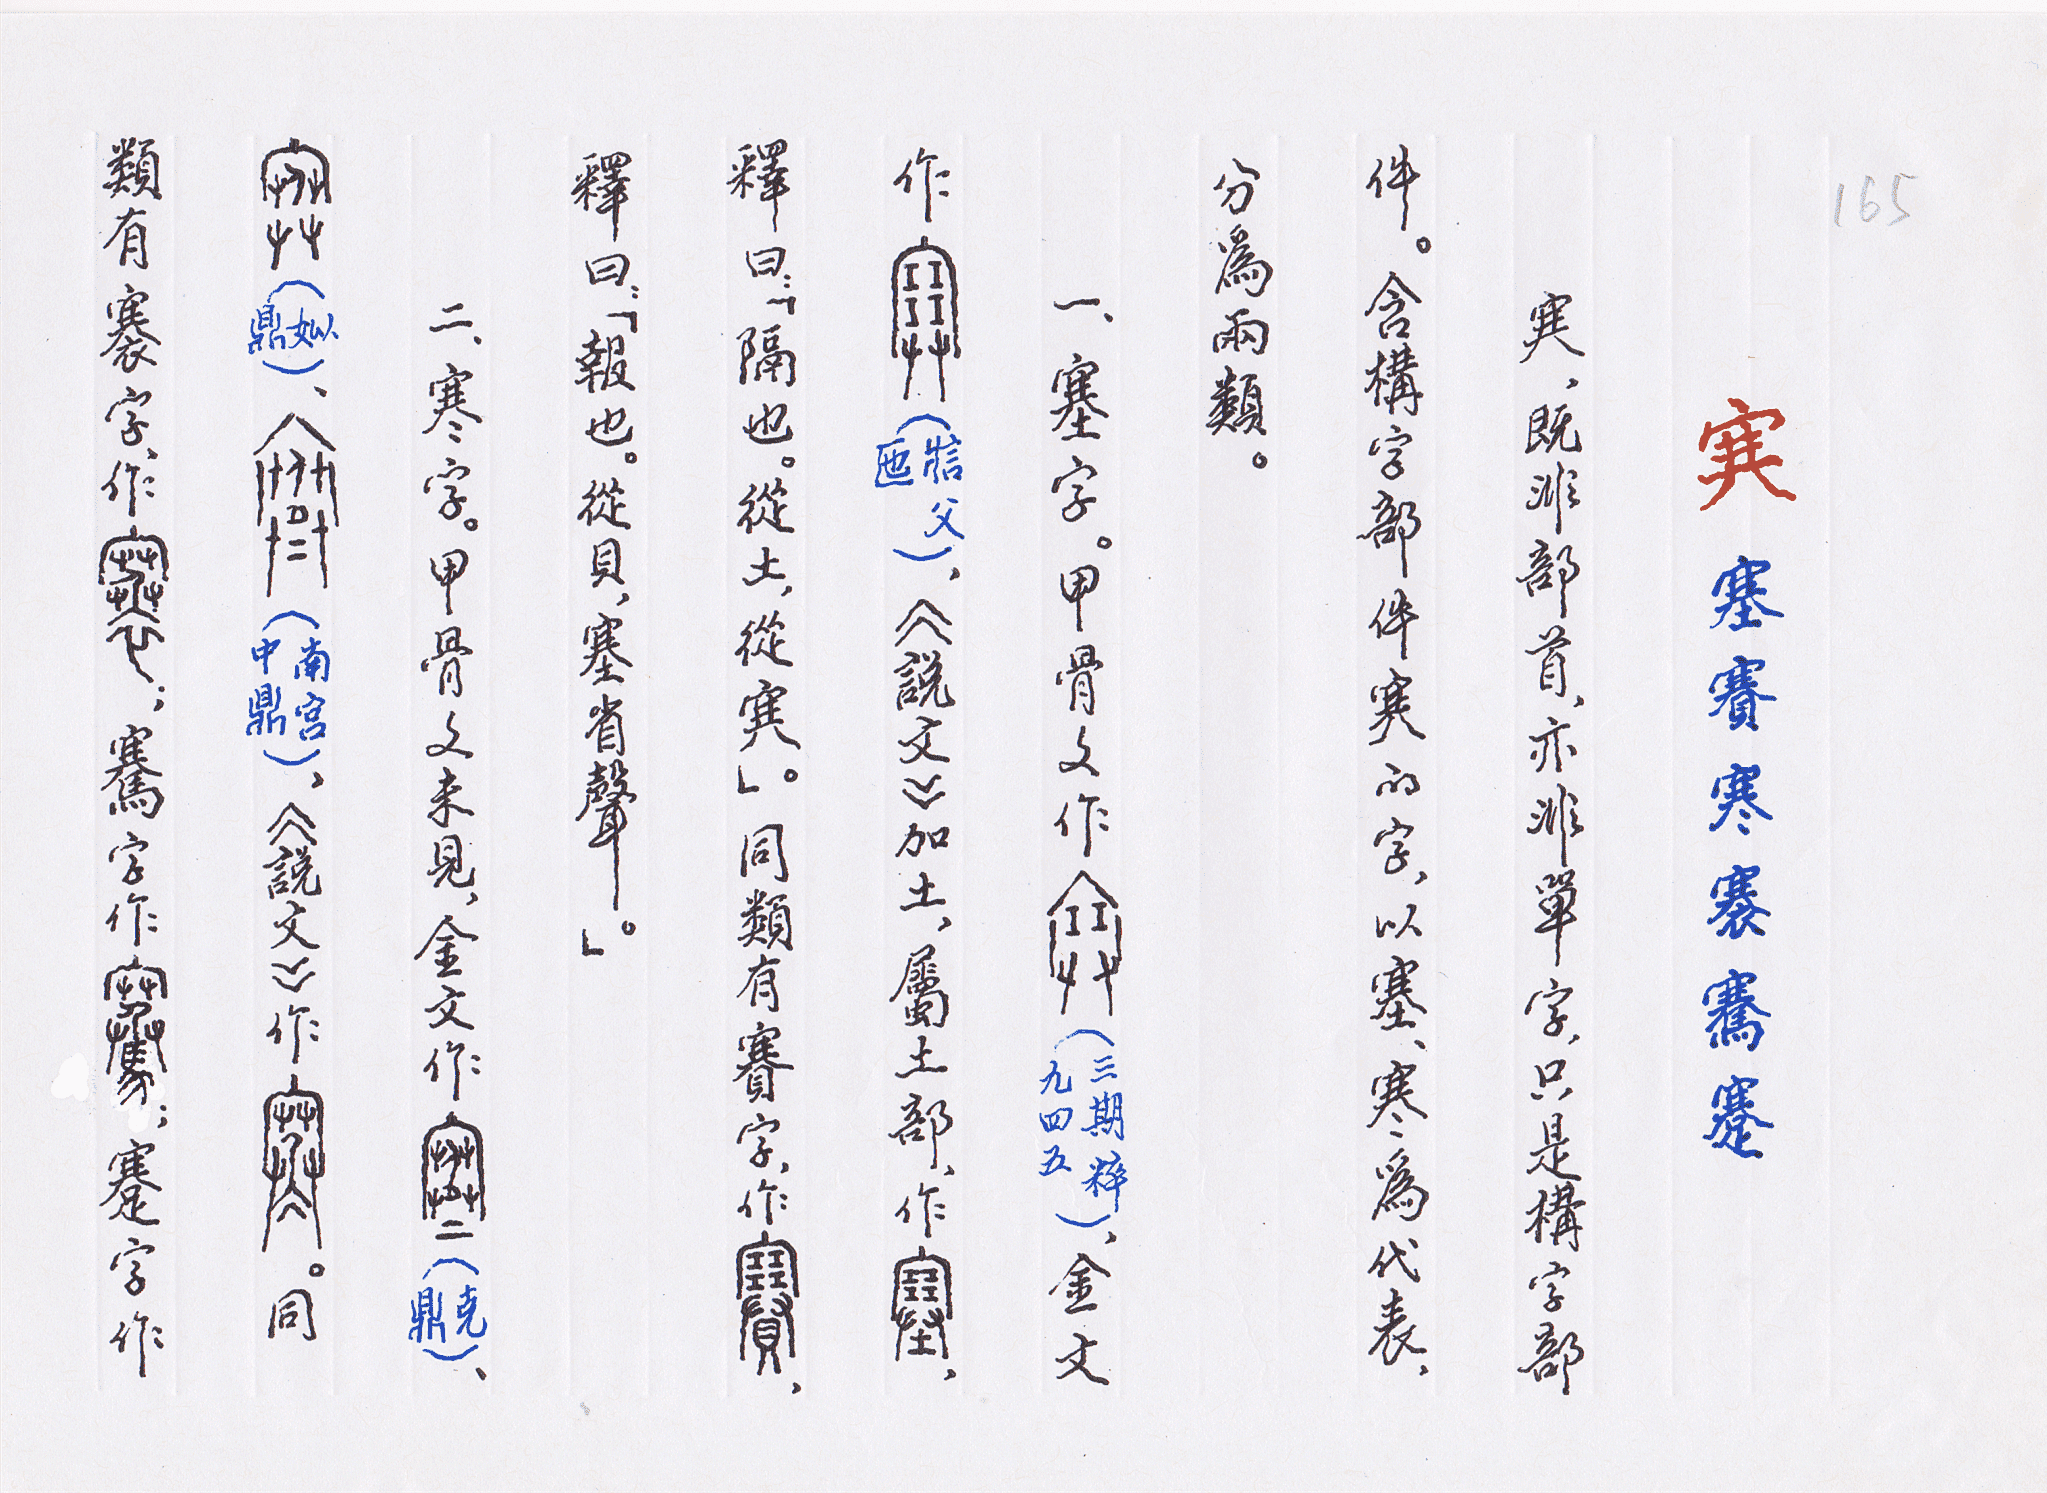 165
𡨄 塞 賽 寒 褰 騫 蹇
𡨄、既非部首、亦非單字、只是構字部
件。含構字部件𡨄的字、以塞、寒為代表、
分為兩類。
一、塞字。甲骨文作(三期粹九四五)、金文
作(父)、《說文》加土、屬土部、作、
釋曰：「隔也。從土，從𡨄」。同類有賽字、作、
釋曰：「報也。從貝，塞省聲」。
二、寒字。甲骨文未見、金文作(克鼎)、
(姒鼎)、(南宮中鼎)、《說文》作。同
類有褰字、作；騫字作；蹇字作